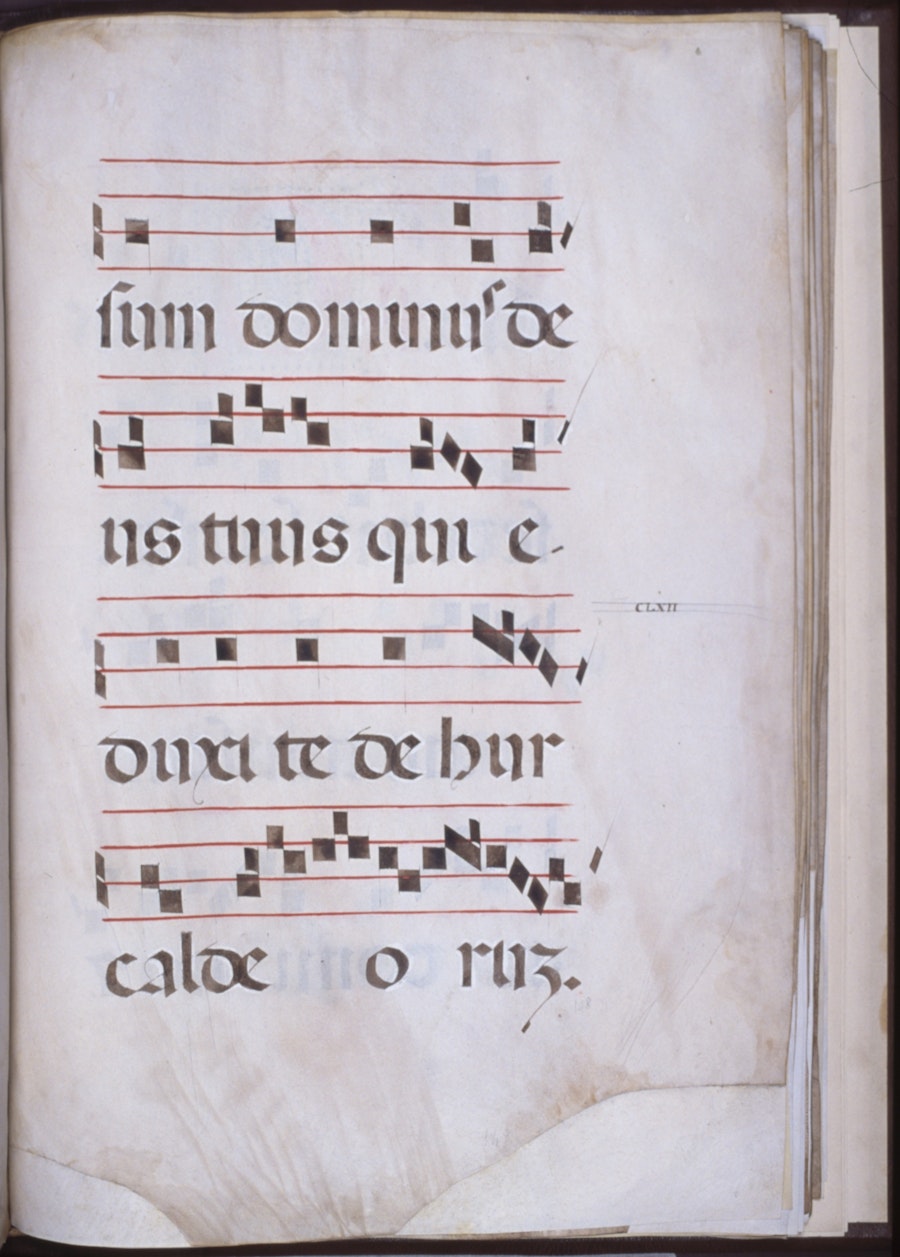 sum dominus de
us tuus qui e-
clxii
duxi te de hur
calde o ruz.